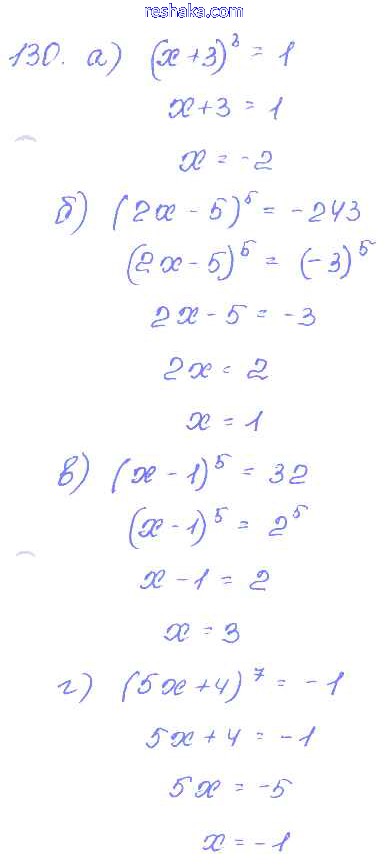 reshaka.com
130. а) (x+3)³ = 1
x+3 = 1
x = -2
б) (2x - 5)⁵ = -243
(2x - 5)⁵ = (-3)⁵
2x - 5 = -3
2x = 2
x = 1
в) (x - 1)⁵ = 32
(x - 1)⁵ = 2⁵
x - 1 = 2
x = 3
г) (5x+4)⁷ = -1
5x + 4 = -1
5x = -5
x = -1